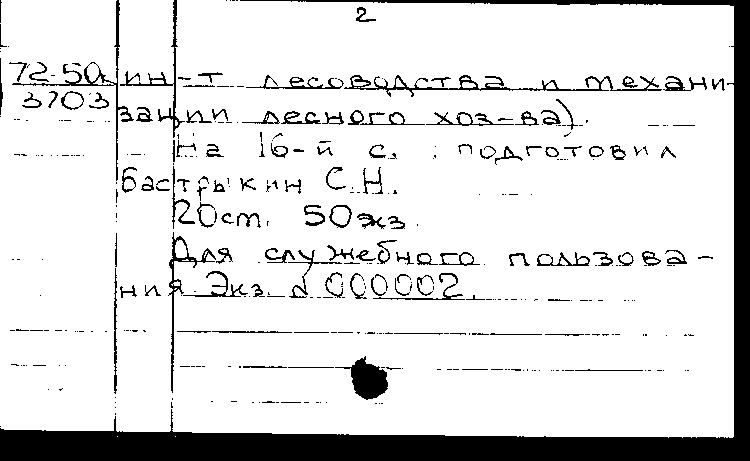 2
72-50к ин-т лесоводства и механи-
3703 зации лесного хоз-ва).
На 16-й с. : подготовил
Бастрыкин С.Н.
20 ст. 50 экз.
Для служебного пользова-
ния. Экз. № 000002.